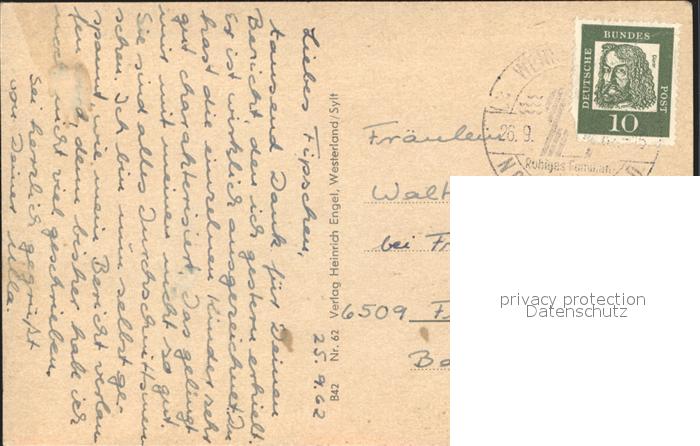 25.9.62
Liebes Fipschen,
tausend Dank für Deinen
Bericht, den ich gestern erhielt.
Er ist wirklich ausgezeichnet. Du
hast die einzelnen Kinder sehr
gut charakterisiert. Das gelingt
mir mit meinen nicht so gut.
Sie sind alles Durchschnittsmen
schen. Ich bin nun selbst ge-
spannt wie mein Bericht verlau
fen, denn bisher habe ich
noch nicht viel geschrieben.
Sei herzlich gegrüßt
von Deiner
B42 Nr. 62 Verlag Heinrich Engel, Westerland/Sylt
DEUTSCHE BUNDES POST
10
26.9.
Ruhiges Familien
Fräulein
Walt
bei Fr
6509
Be
privacy protection
Datenschutz